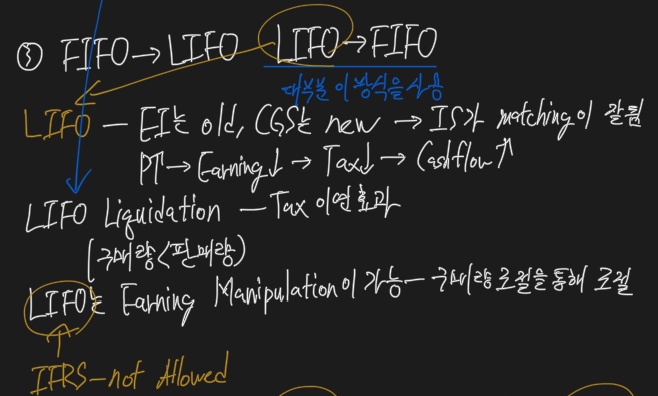 ③ FIFO → LIFO LIFO → FIFO
대부분 이 방식을 사용
LIFO — EI는 old, CGS는 new → IS가 matching이 잘됨
PT → Earning↓ → Tax↓ → Cashflow↑
LIFO Liquidation — Tax 이연효과
(구매량<판매량)
LIFO는 Earning Manipulation이 가능 — 구매량 조절을 통해 조절
IFRS — not Allowed